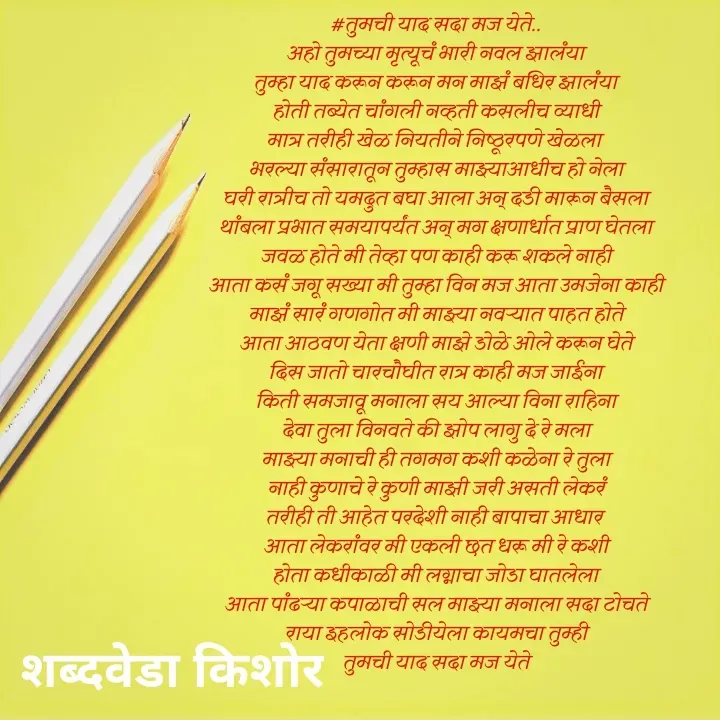 #तुमची याद सदा मज येते..
अहो तुमच्या मृत्यूचं भारी नवल झालंया
तुम्हा याद करून करून मन माझं बधिर झालंया
होती तब्येत चांगली नव्हती कसलीच व्याधी
मात्र तरीही खेळ नियतीने निष्ठूरपणे खेळला
भरल्या संसारातून तुम्हास माझ्याआधीच हो नेला
घरी रात्रीच तो यमदुत बघा आला अन् दडी मारून बैसला
थांबला प्रभात समयापर्यंत अन् मग क्षणार्धात प्राण घेतला
जवळ होते मी तेव्हा पण काही करू शकले नाही
आता कसं जगू सख्या मी तुम्हा विन मज आता उमजेना काही
माझं सारं गणगोत मी माझ्या नवऱ्यात पाहत होते
आता आठवण येता क्षणी माझे डोळे ओले करून घेते
दिस जातो चारचौघीत रात्र काही मज जाईना
किती समजावू मनाला सय आल्या विना राहिना
देवा तुला विनवते की झोप लागु दे रे मला
माझ्या मनाची ही तगमग कशी कळेना रे तुला
नाही कुणाचे रे कुणी माझी जरी असती लेकरं
तरीही ती आहेत परदेशी नाही बापाचा आधार
आता लेकरांवर मी एकली छत धरू मी रे कशी
होता कधीकाळी मी लग्नाचा जोडा घातलेला
आता पांढऱ्या कपाळाची सल माझ्या मनाला सदा टोचते
राया इहलोक सोडीयेला कायमचा तुम्ही
तुमची याद सदा मज येते
शब्दवेडा किशोर